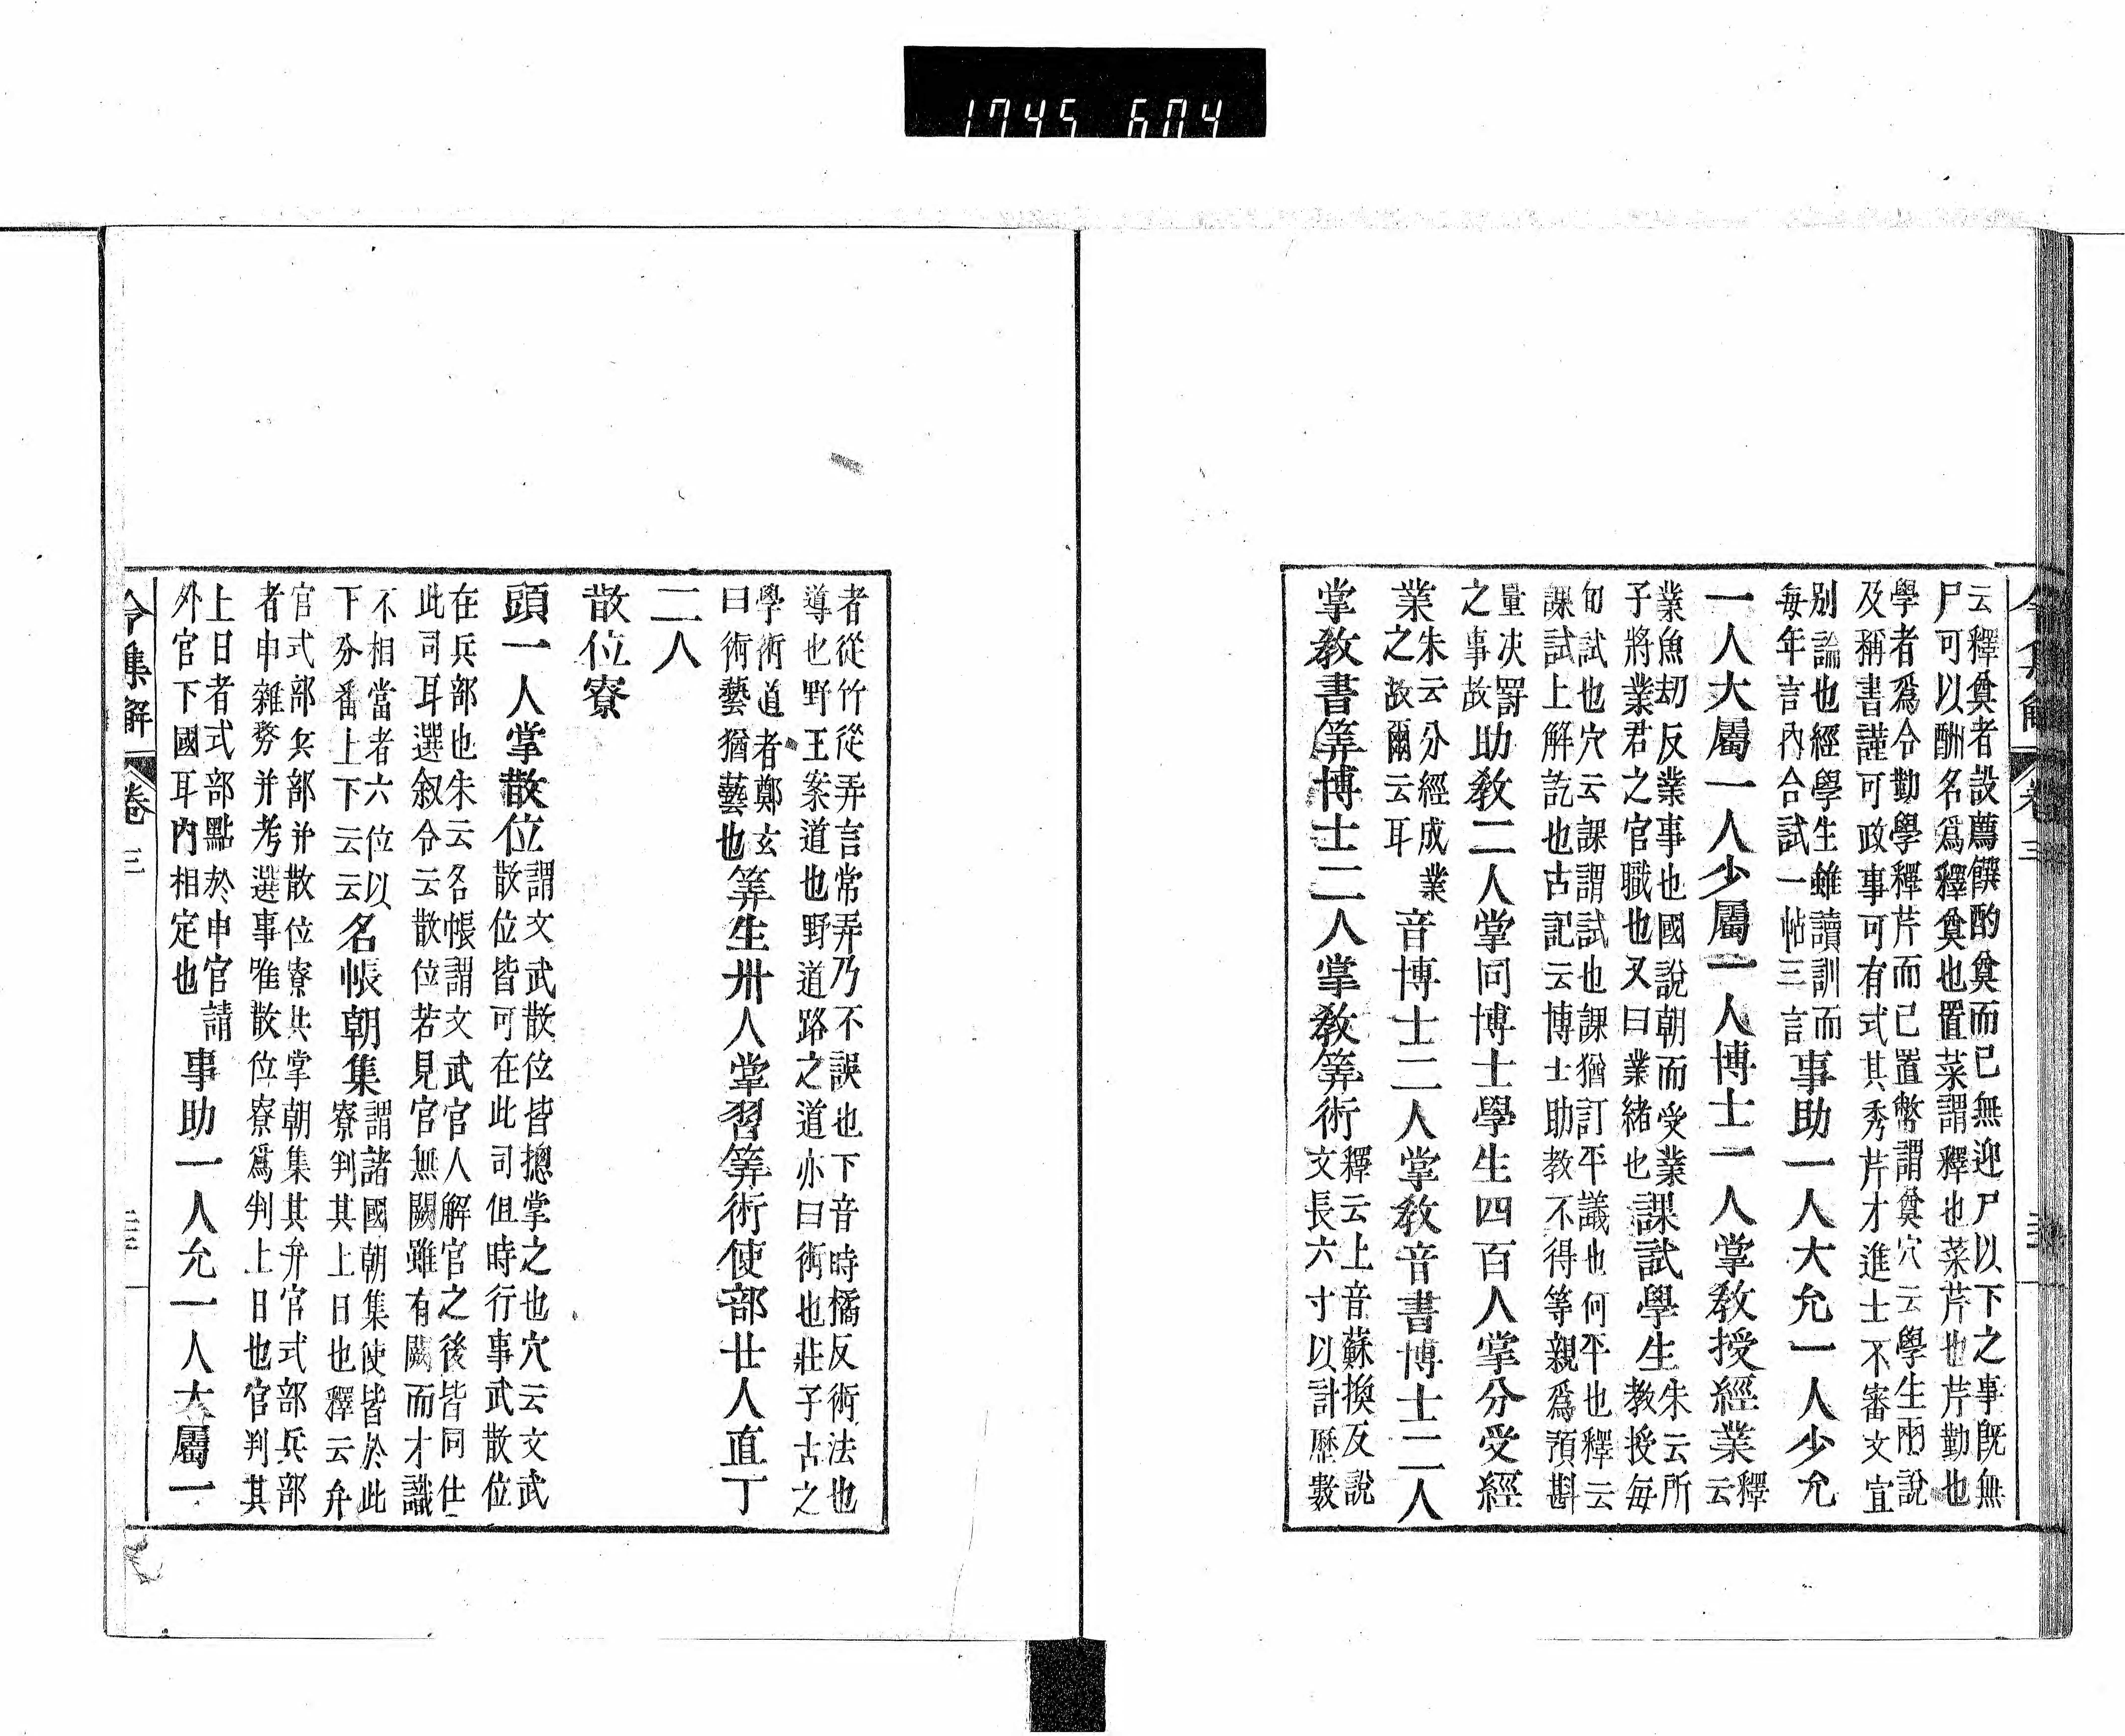 1745 604
云釋奠者設薦饌酌奠而已無迎尸以下之事既無
尸可以酬名爲釋奠也置菜謂釋也菜芹也芹勤也
學者爲令勤學釋芹而已置幣謂奠穴云學生兩說
及稱書謹可政事可有式其秀芹才進士不審文宜
別論也經學生雖讀訓而
毎年言內合試一帖三言
事助一人大允一人少允
一人大屬一人少屬一人博士一人掌敎授經業
釋
云
業魚刧反業事也國說朝而受業
子將業君之官職也又曰業緒也
課試學生
朱云所
教授毎
旬試也穴云課謂試也課猶訂平議也何平也釋云
課試上解訖也古記云博士助教不得等親爲預斟
量决罸
之事故
助敎二人掌同博士學生四百人掌分受經
業
朱云分經成業
之故爾云耳
音博士二人掌敎音書博士二人
掌敎書筭博士二人掌敎筭術
釋云上音蘇換反說
文長六寸以計歷數
令集解 卷三
者從竹從弄言常弄乃不誤也下音時橘反術法也
導也野王案道也野道路之道亦曰術也莊子古之
學術道者鄭玄
曰術藝猶藝也
筭生卅人掌習筭術使部廿人直丁
二人
散位寮
頭一人掌散位
謂文武散位皆摠掌之也穴云文武
散位皆可在此司但時行事武散位
在兵部也朱云名帳謂文武官人解官之後皆同仕
此司耳選叙令云散位若見官無闕雖有闕而才識
不相當者六位以
下分番上下云云
名帳朝集
謂諸國朝集使皆於此
寮判其上日也釋云弁
官式部兵部并散位寮共掌朝集其弁官式部兵部
者申雜務并考選事唯散位寮爲判上日也官判其
上日者式部點於申官請
外官下國耳內相定也
事助一人允一人大屬一
令集解 卷三